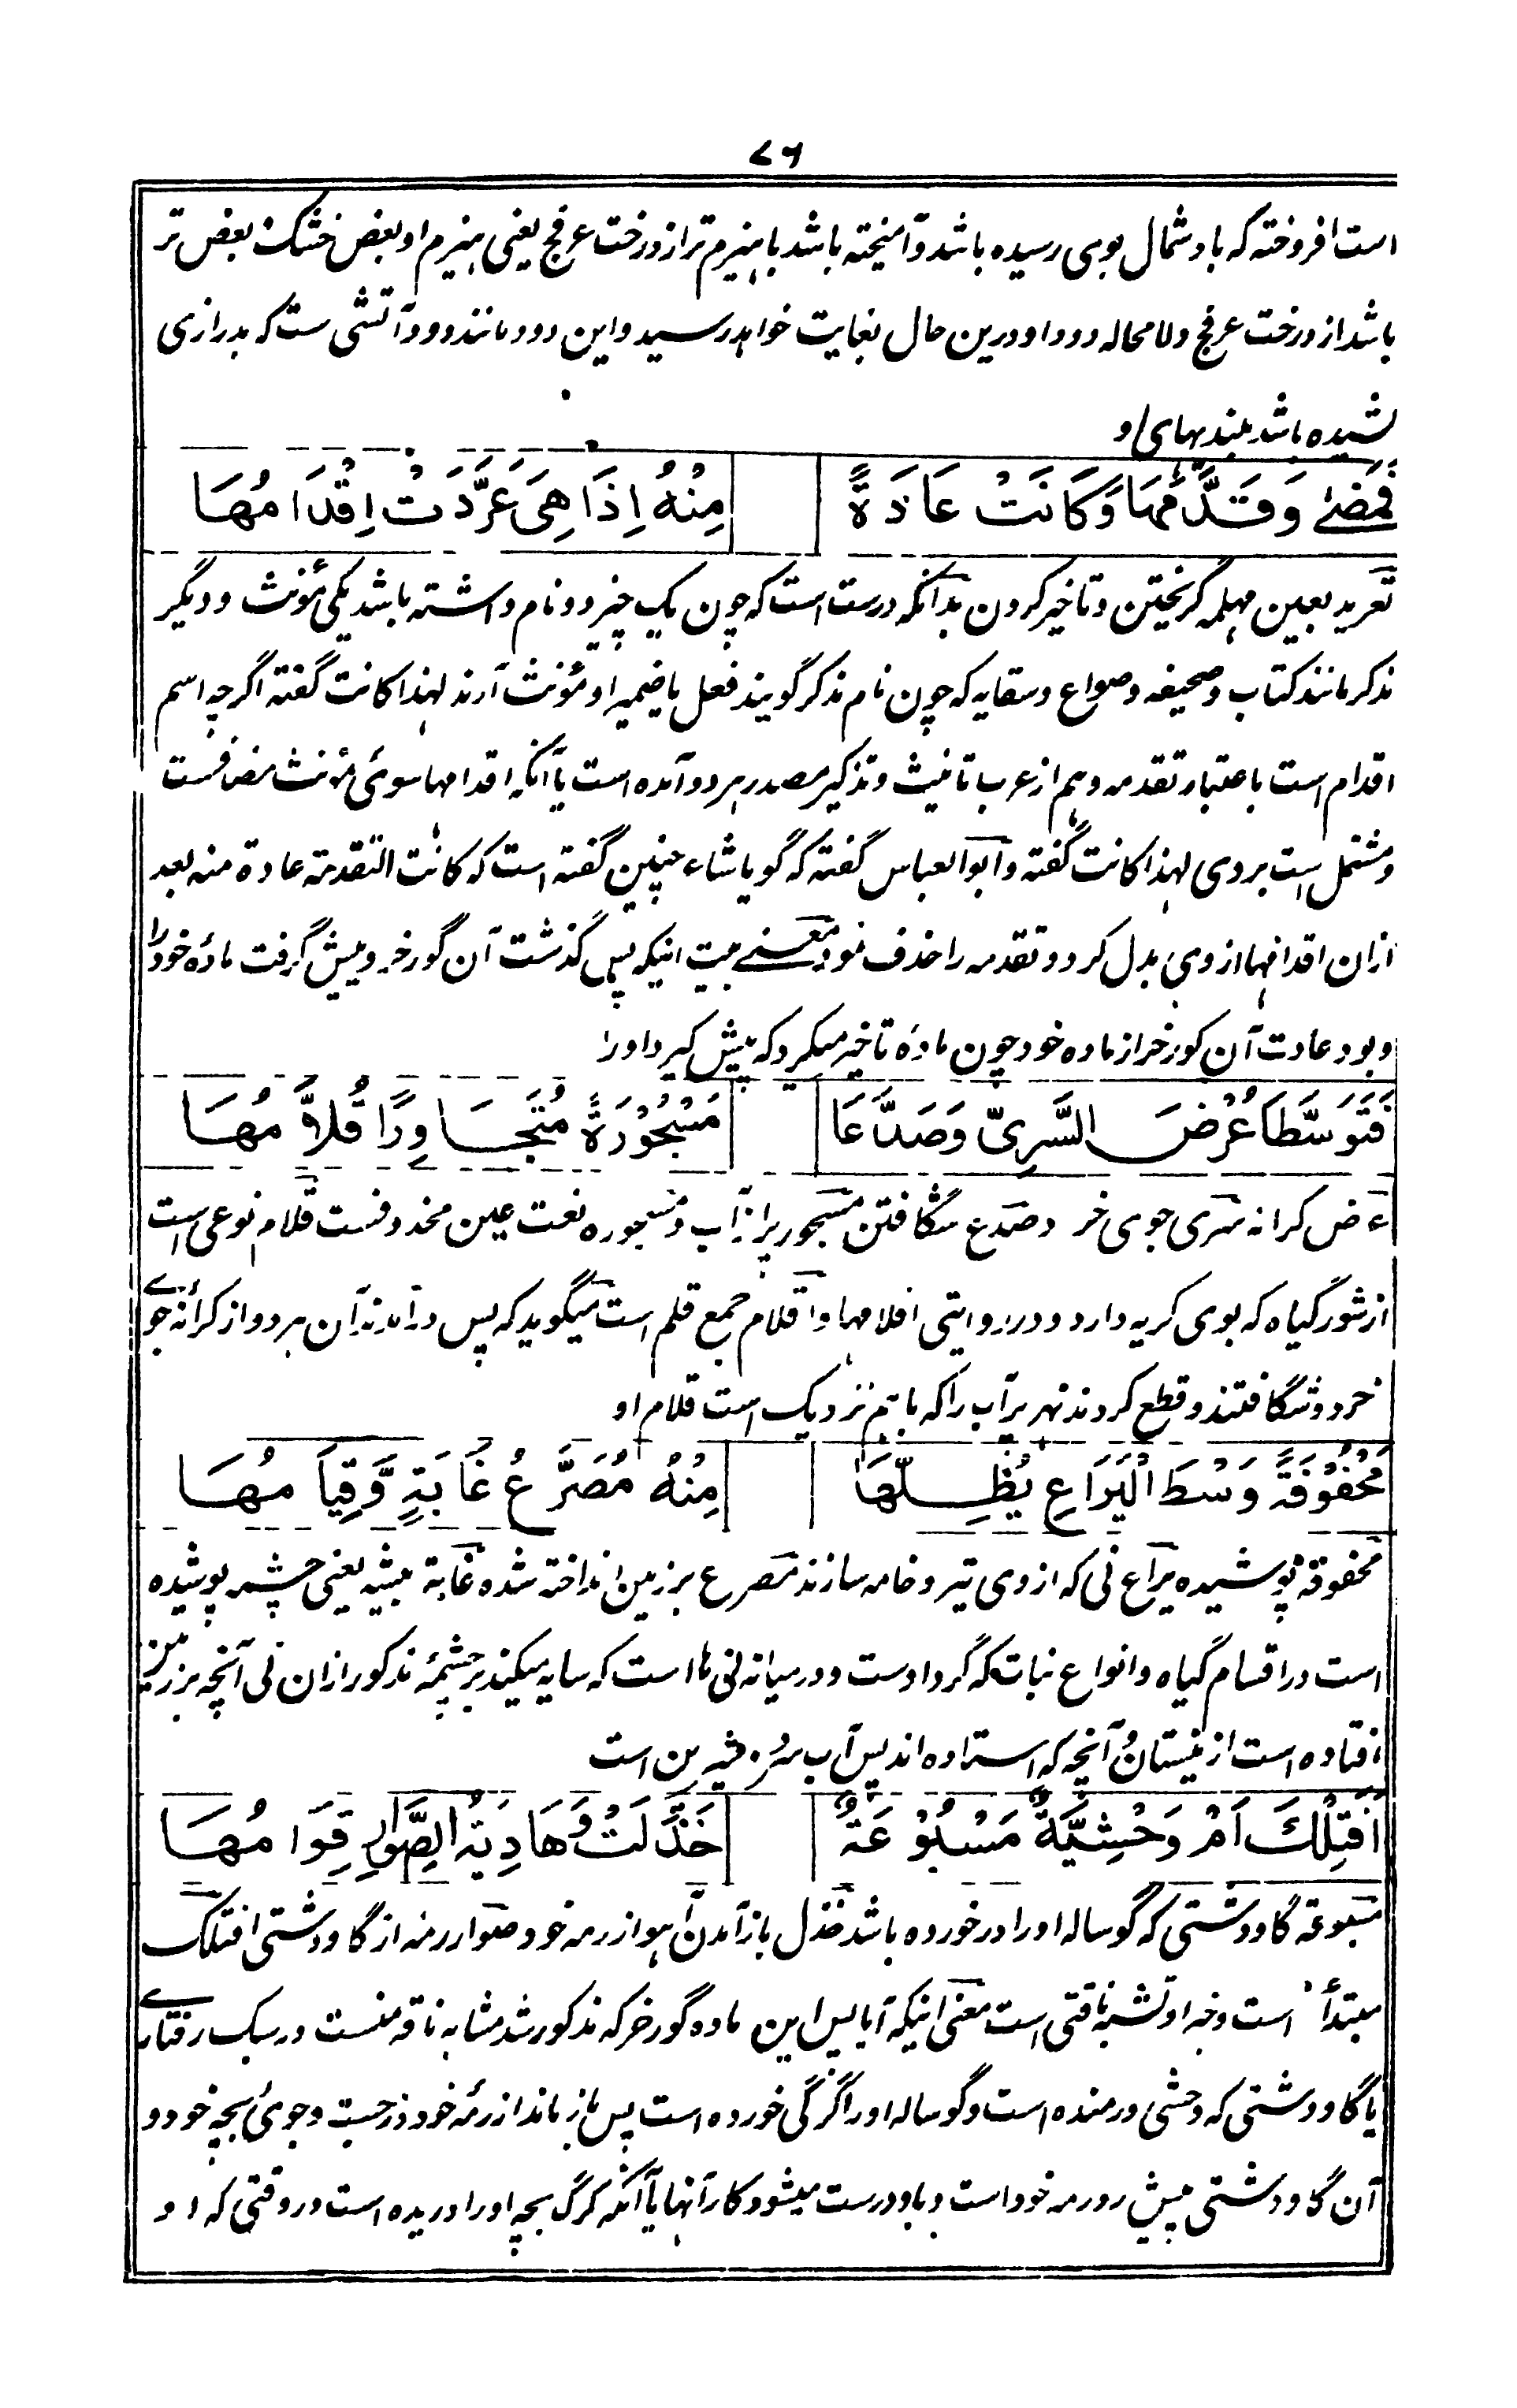 ۷۶
است افروخته که باد شمال بوی رسیده باشد و آمیخته باشد با هیزم تر از درخت عرفج یعنی هیزم او بعض خشک و بعض تر
باشد از درخت عرفج و لا محاله دود او درین حال بغایت خواهد رسید و این دود مانند دود آتشی ست که بدرازی
کشیده باشد بلندیهای او
فَمَضٰى وَقَدَّمَهَا وَكَانَتْ عَادَةً مِنْهُ اِذَا هِىَ عَرَّدَتْ اِقْدَامُهَا
تعرید بعین مهمله گریختن و تاخیر کردن بدانکه درست است که چون یک چیز دو نام داشته باشد یکی مؤنث و دیگر
مذکر مانند کتاب و صحیفه و صواع و سقایه که چون نام مذکر گویند فعل یا ضمیر او مؤنث آرند لهذا کانت گفته اگرچه اسم
اقدام است باعتبار تقدمه و هم از عرب تانیث و تذکیر مصدر هر دو آمده است یا آنکه اقدامها سوئ مؤنث مضافست
و مشتمل است بر وی لهذا کانت گفته و ابو العباس گفته که گویا شاعر چنین گفته است که کانت التقدمة عادة منه بعد
ازان اقدامها از وی بدل کرد و تقدمه را حذف نمود معنے بیت اینکه پس گذشت آن گورخر و پیش گرفت مادۂ خود را
و بود عادت آن گورخر از ماده خود چون مادۂ تاخیر میکرد که پیش گیرد او را
فَتَوَسَّطَا عُرْضَ السَّرِىِّ وَصَدَّعَا مَسْجُوْرَةً مُتَجَاوِرًا قُلَّامُهَا
عرض کرانه سری جوی خرد و صدع شگافتن مسجور پر از آب و مسجوره نعت عین محذوفست قلام نوعی است
از شور گیاه که بوی کریه دارد و در روایتی اقلامها و اقلام جمع قلم است میگوید که پس درآمدند آن هر دو از کرانهٔ جوے
خرد و شگافتند و قطع کردند نهر پر آب را که باهم نزدیک است قلام او
مَحْفُوْفَةً وَسْطَ الْيَرَاعِ يُظِلُّهَا مِنْهُ مُصَرَّعُ غَابَةٍ وَّقِيَامُهَا
محفوفة پوشیده یراع نی که از وی تیر و خامه سازند مصرع بر زمین انداخته شده غابة بیشه یعنی چشمه پوشیده
است در اقسام گیاه و انواع نبات که گرد اوست و در میانه نی ها است که سایه میکند بر چشمهٔ مذکور ازان نی آنچه بر زمین
افتاده است از نیستان و آنچه که استاده اند پس آب سرد و شیرین است
اَفَتِلْكَ اَمْ وَحْشِيَّةٌ مَسْبُوْعَةٌ خَذَلَتْ وَهَادِيَةُ الصِّوَارِ قِوَامُهَا
مسبوعة گاو دشتی که گوساله او را در خورده باشد خذل باز آمدن آهو از رمه خود صوار رمه از گاو دشتی افتلک
مبتدأ است و خبر او تشبه ناقتی است معنی اینکه آیا پس این ماده گورخر که مذکور شد مشابه ناقه منست در سبک رفتارے
یا گاو دشتی که وحشی و رمنده است و گوساله او را گرگی خورده است پس باز ماند از رمهٔ خود در جست و جوئ بچه خود و
آن گاو دشتی پیش رو رمه خود است و باو درست میشود کار آنها یا آنکه گرگ بچه او را دریده است در وقتی که او